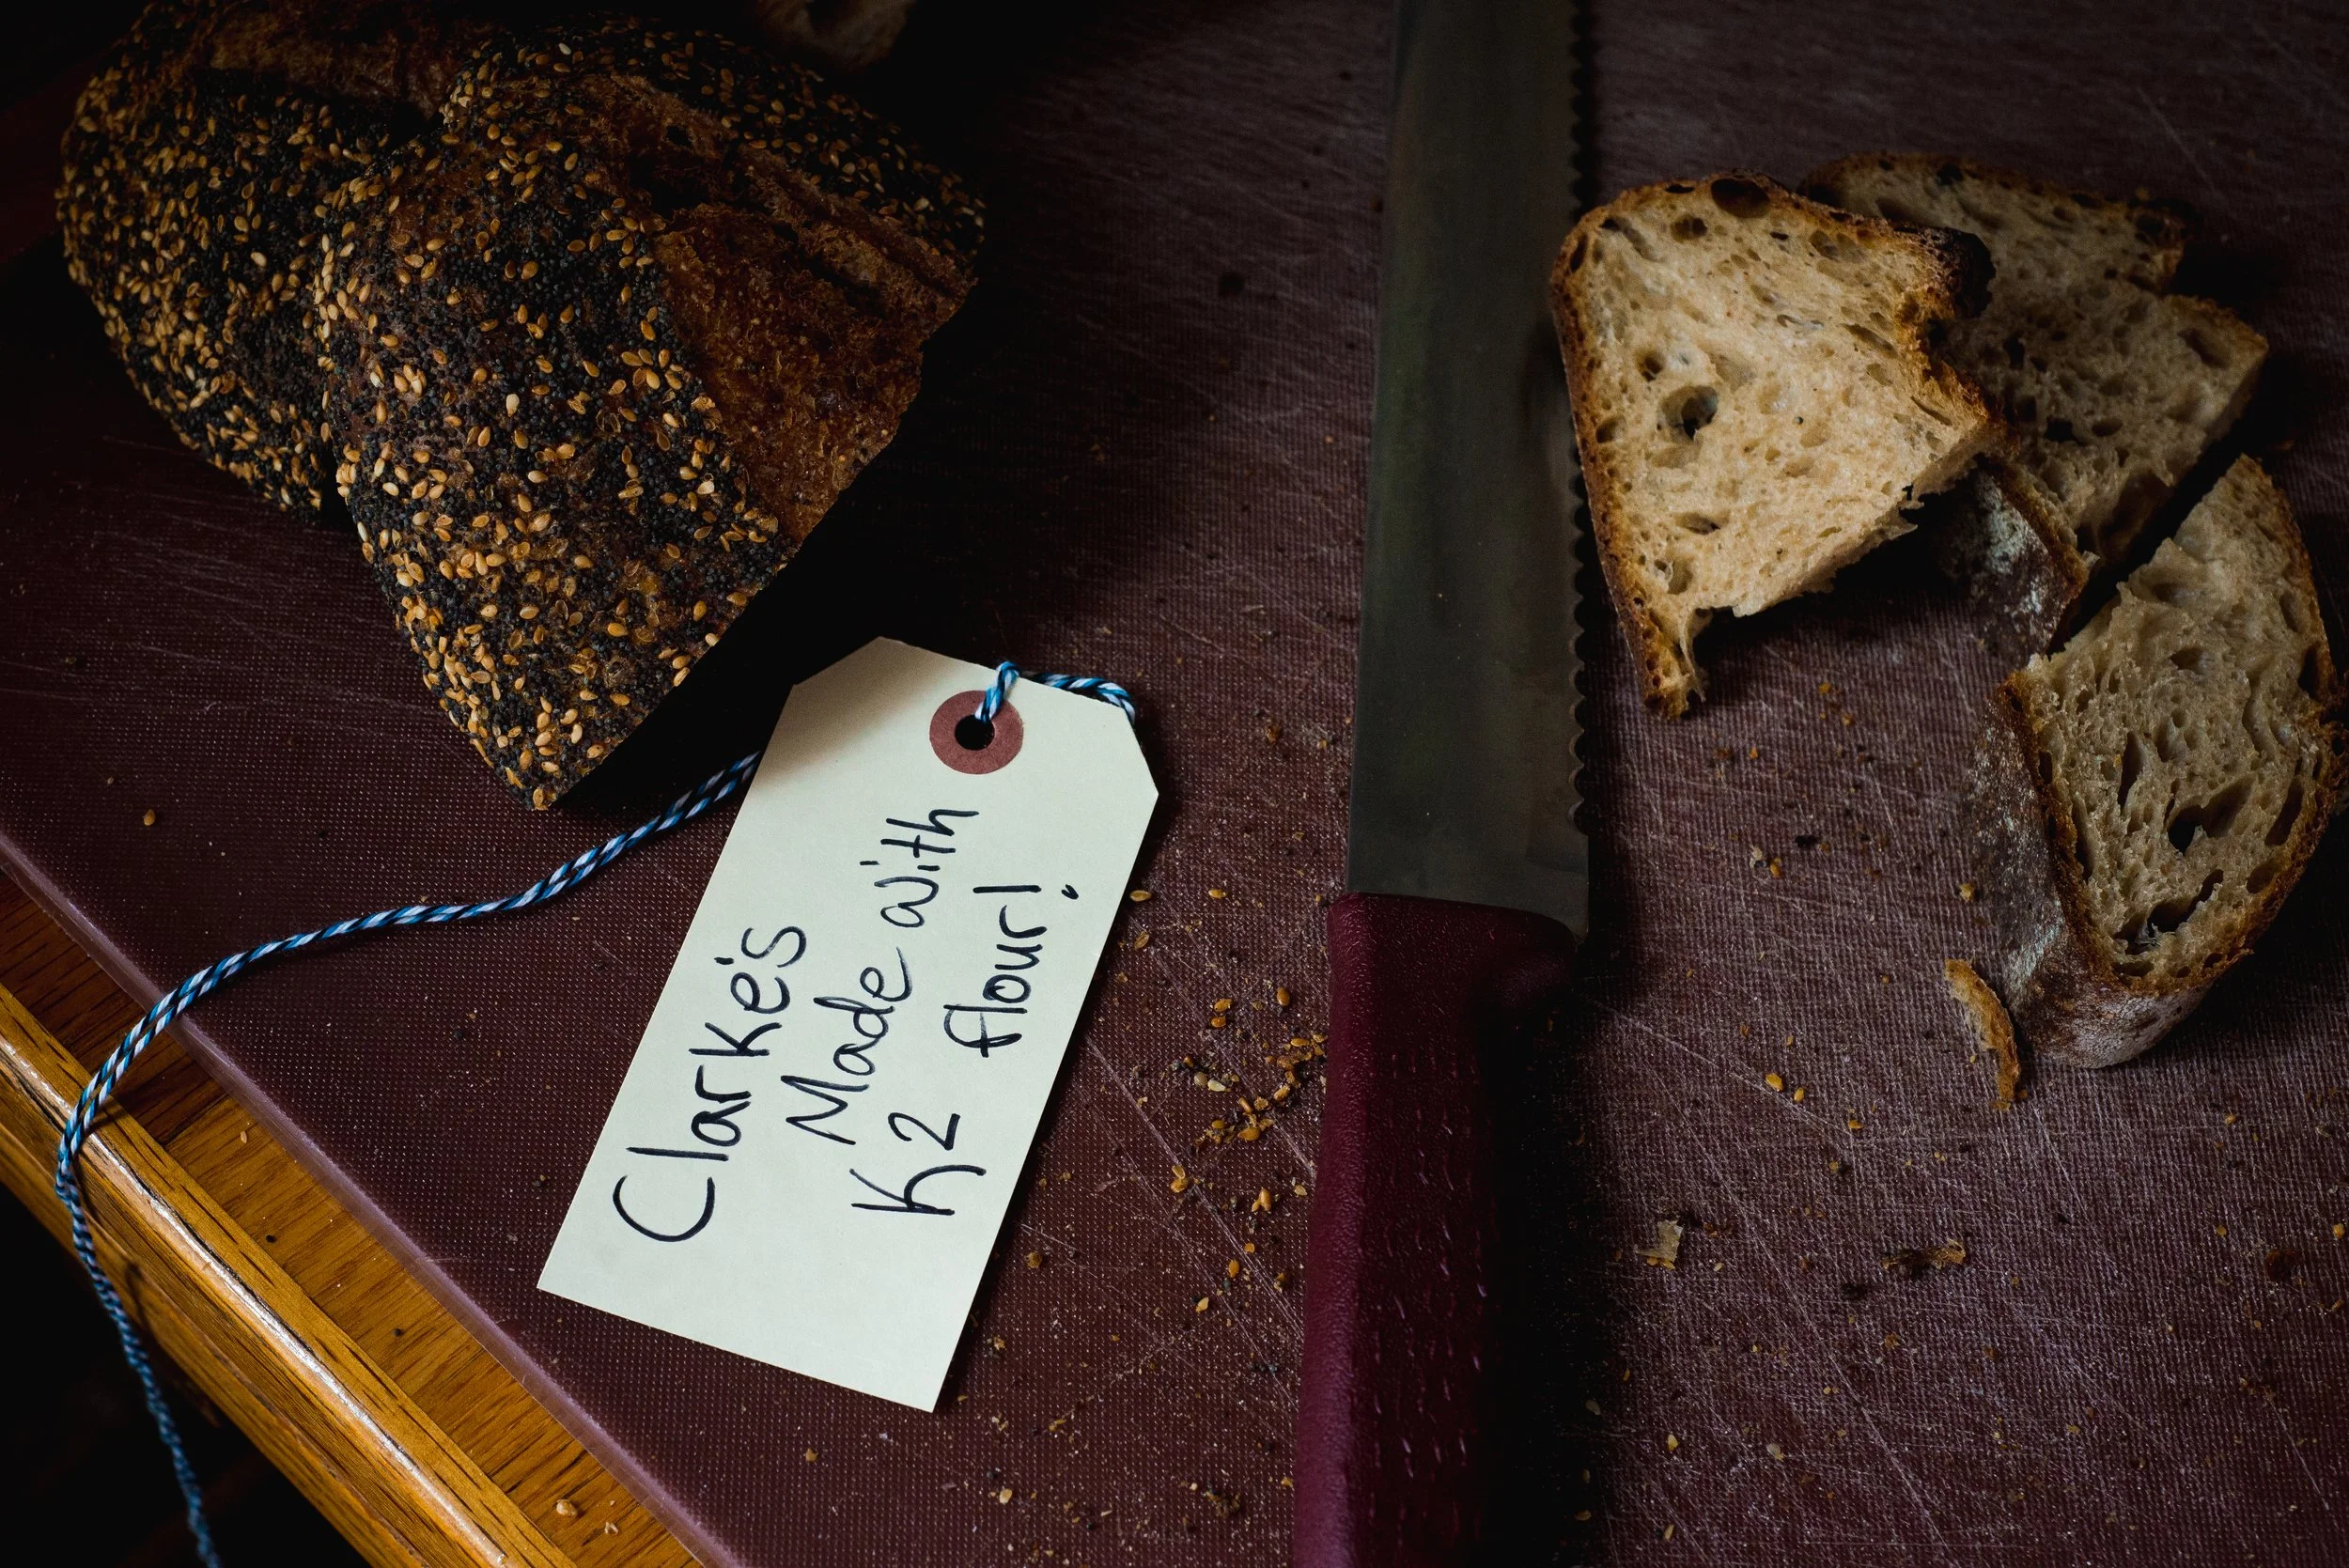 Clarke's
Made with
K2 flour!